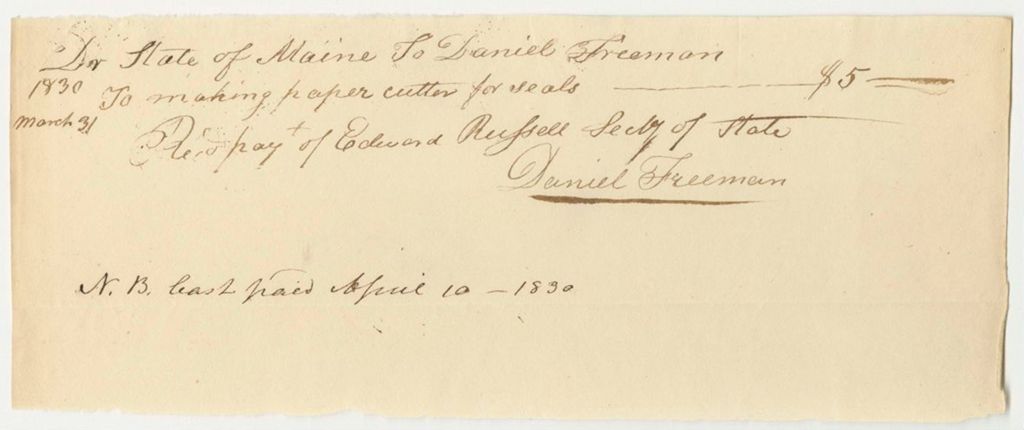 Dr State of Maine To Daniel Freeman
1830 To making paper cutter for seals $5
March 31
Rec'd pay't of Edward Russell Secty of State
Daniel Freeman
N.B. Cash paid April 10 - 1830